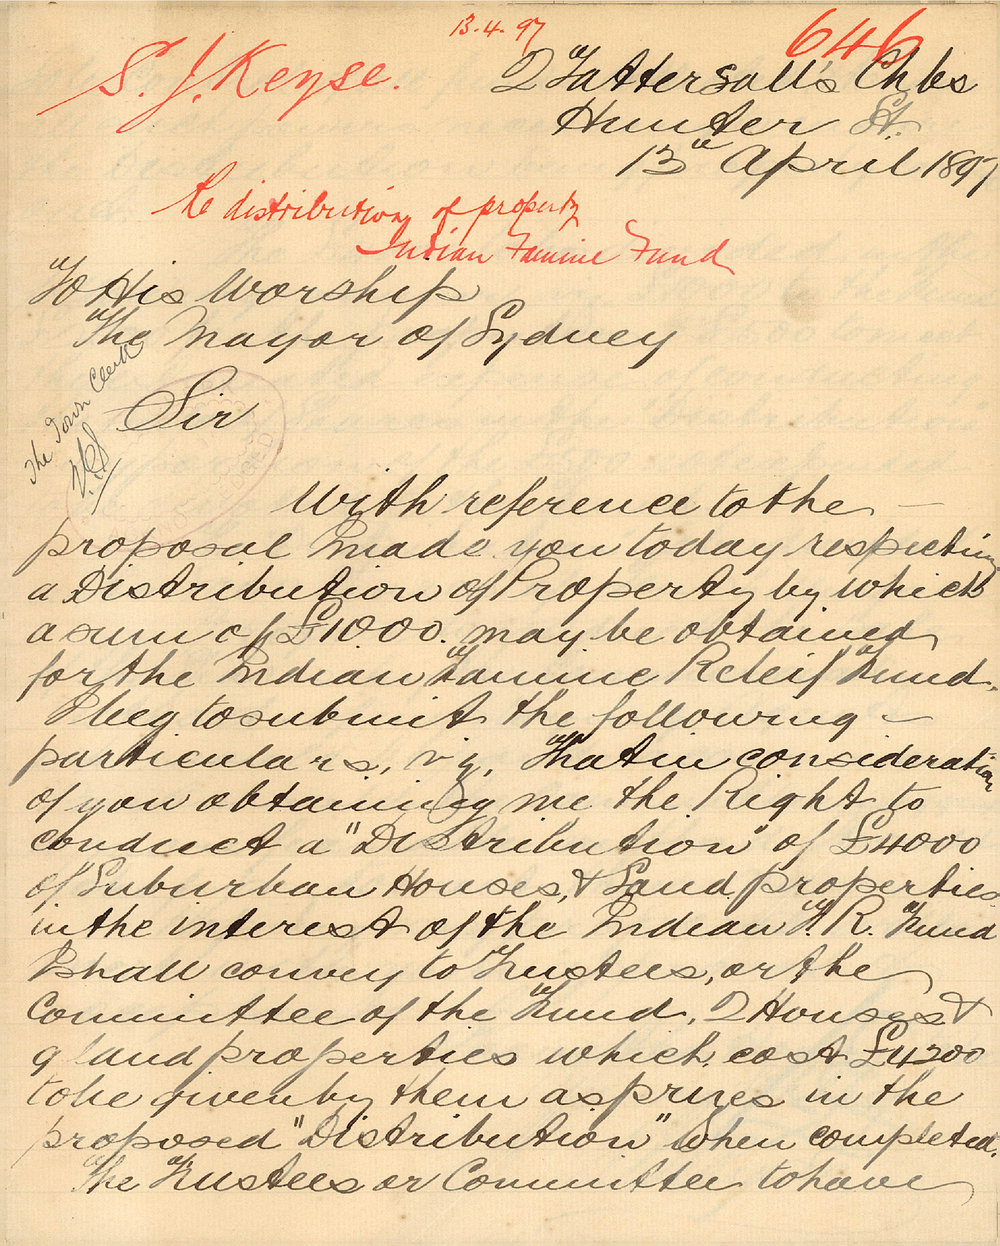 13.4.97
646
S. J. Keyse.
2 Tattersall's Chbs
Hunter St.
13th April 1897
Re distribution of property
Indian Famine Fund
To His Worship
The Mayor of Sydney
The Town Clerk
Sir
With reference to the
proposal I made you today respecting
a Distribution of Property by which
a sum of £1000. may be obtained
for the Indian Famine Releif Fund.
I beg to submit the following –
particulars, viz, That in consideration
of you obtaining me the Right to
conduct a "Distribution" of £4000
of Suburban Houses, & Land properties
in the interest of the Indian F. R. Fund
I shall convey to Trustees, or the
Committee of the Fund, 2 Houses &
9 land properties which cost £4200
to be given by them as prizes in the
proposed "Distribution" when completed.
The Trustees or Committee to have